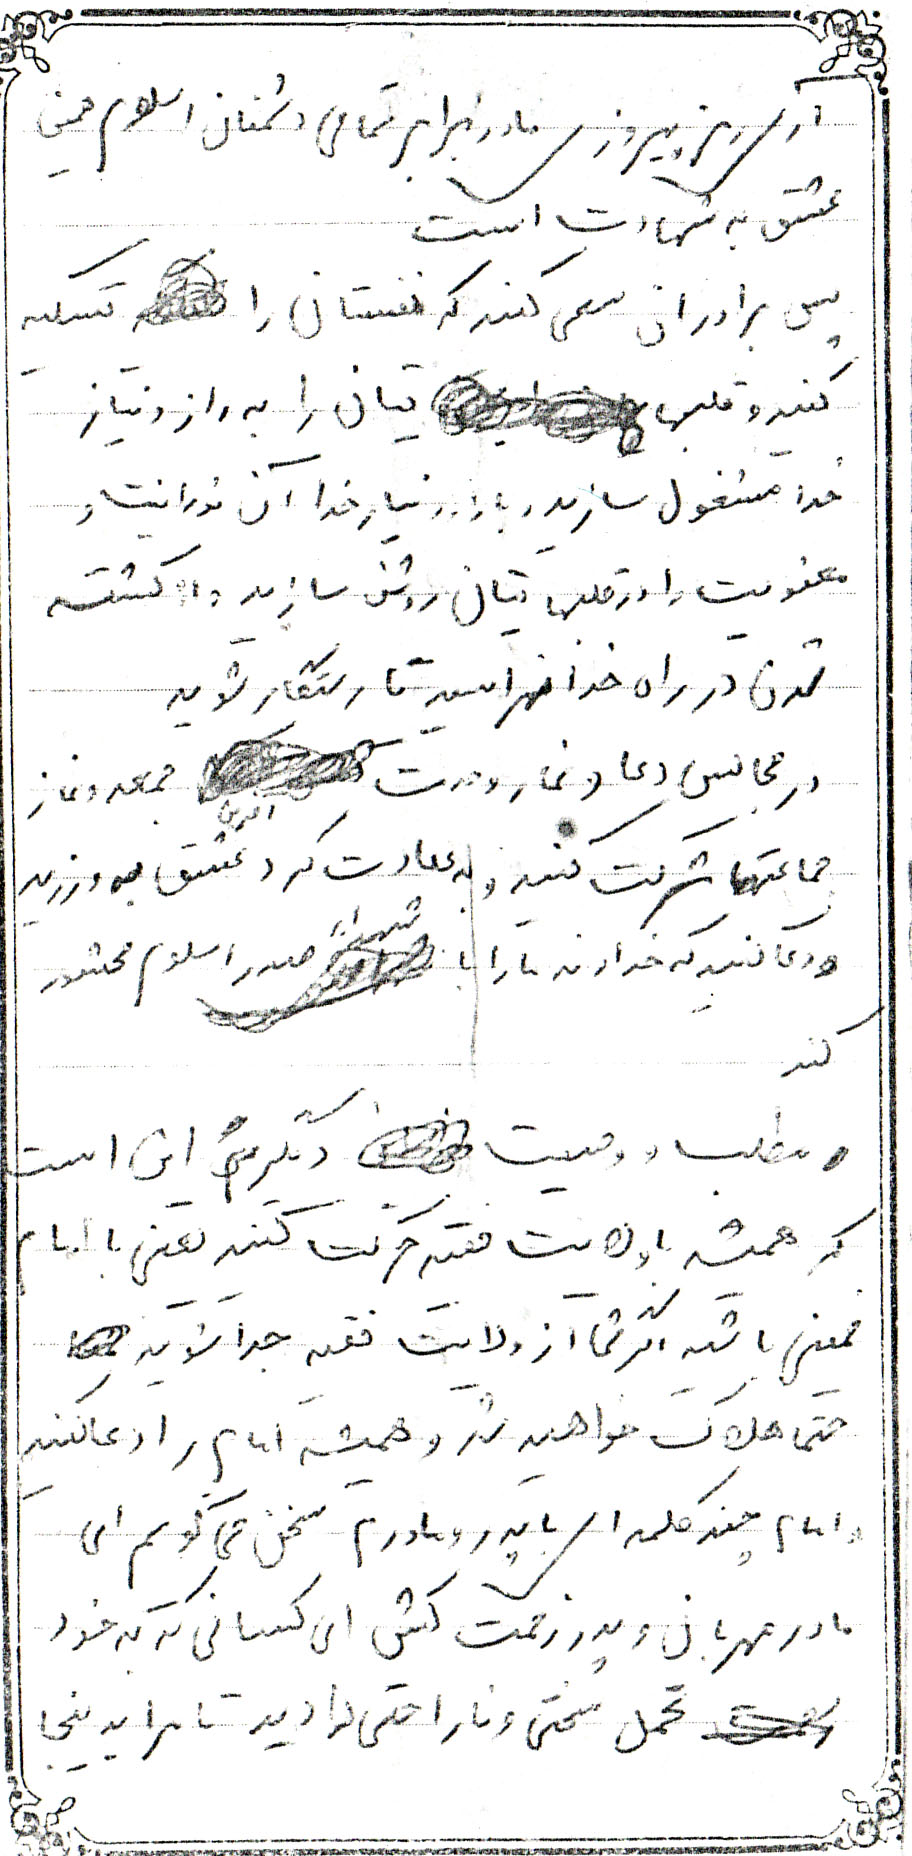 آری رمز پیروزی ما در برابر تمامی دشمنان اسلام همین
عشق به شهادت است
پس برادران سعی کنند که نفستان را تزکیه
کنید و قلبهایتان را به راز و نیاز
خدا مشغول سازید و با راز و نیاز خدا آن نورانیت و
معنویت را در قلبهایتان روشن سازید و از کشته
شدن در راه خدا نهراسید تا رستگار شوید
در مجالس دعا و نماز وحدت آفرین جمعه و نماز
جماعتها شرکت کنید و به عبادت کرد عشق بورزید
و دعا کنید که خداوند ما را با شهدای صدر اسلام محشور
کند
و مطلب و وصیت دیگرم این است
که همیشه با ولایت فقیه حرکت کنید یعنی با امام
خمینی باشید اگر شما از ولایت فقیه جدا شوید
حتما هلاک خواهید شد و همیشه امام را دعا کنید
و اما چند کلمه ای با پدر و مادرم سخن می گویم ای
مادر مهربان و پدر زحمت کش ای کسانی که به خود
تحمل سختی و ناراحتی دادید تا مرا بدینجا